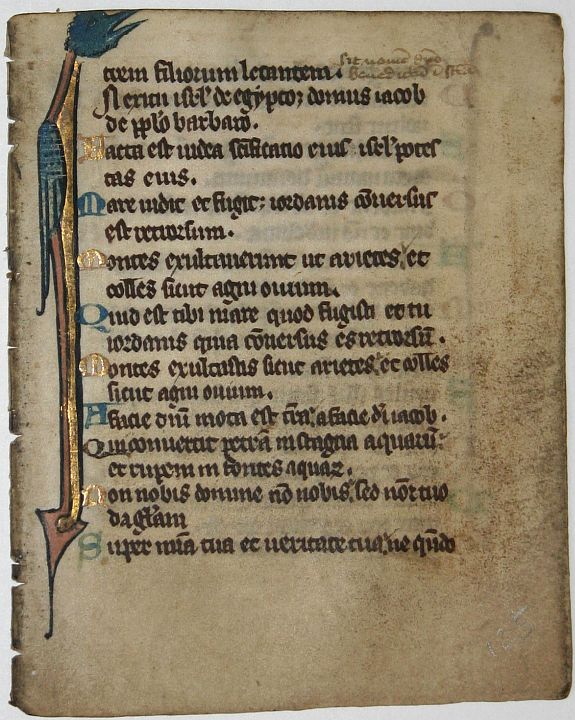 trem filiorum letantem.
N exitu isrl' de egypto; domus iacob
de pplo barbaro.
Facta est iudea scificatio eius isrl' potes
tas eius.
Mare uidit et fugit; iordanis conuersus
est retrorsum.
Montes exultauerunt ut arietes, et
colles sicut agni ouium.
Quid est tibi mare quod fugisti et tu
iordanis quia conuersus es retrorsū.
Montes exultastis sicut arietes, et colles
sicut agni ouium.
A facie dn̄i mota est tr̄a, a facie dī iacob.
Qui conuertit petrā in stagna aquarū
et rupem in fontes aquar.
Non nobis domine nō nobis, sed nōī tuo
da gl'am
Super mīa tua et ueritate tua, ne qn̄do